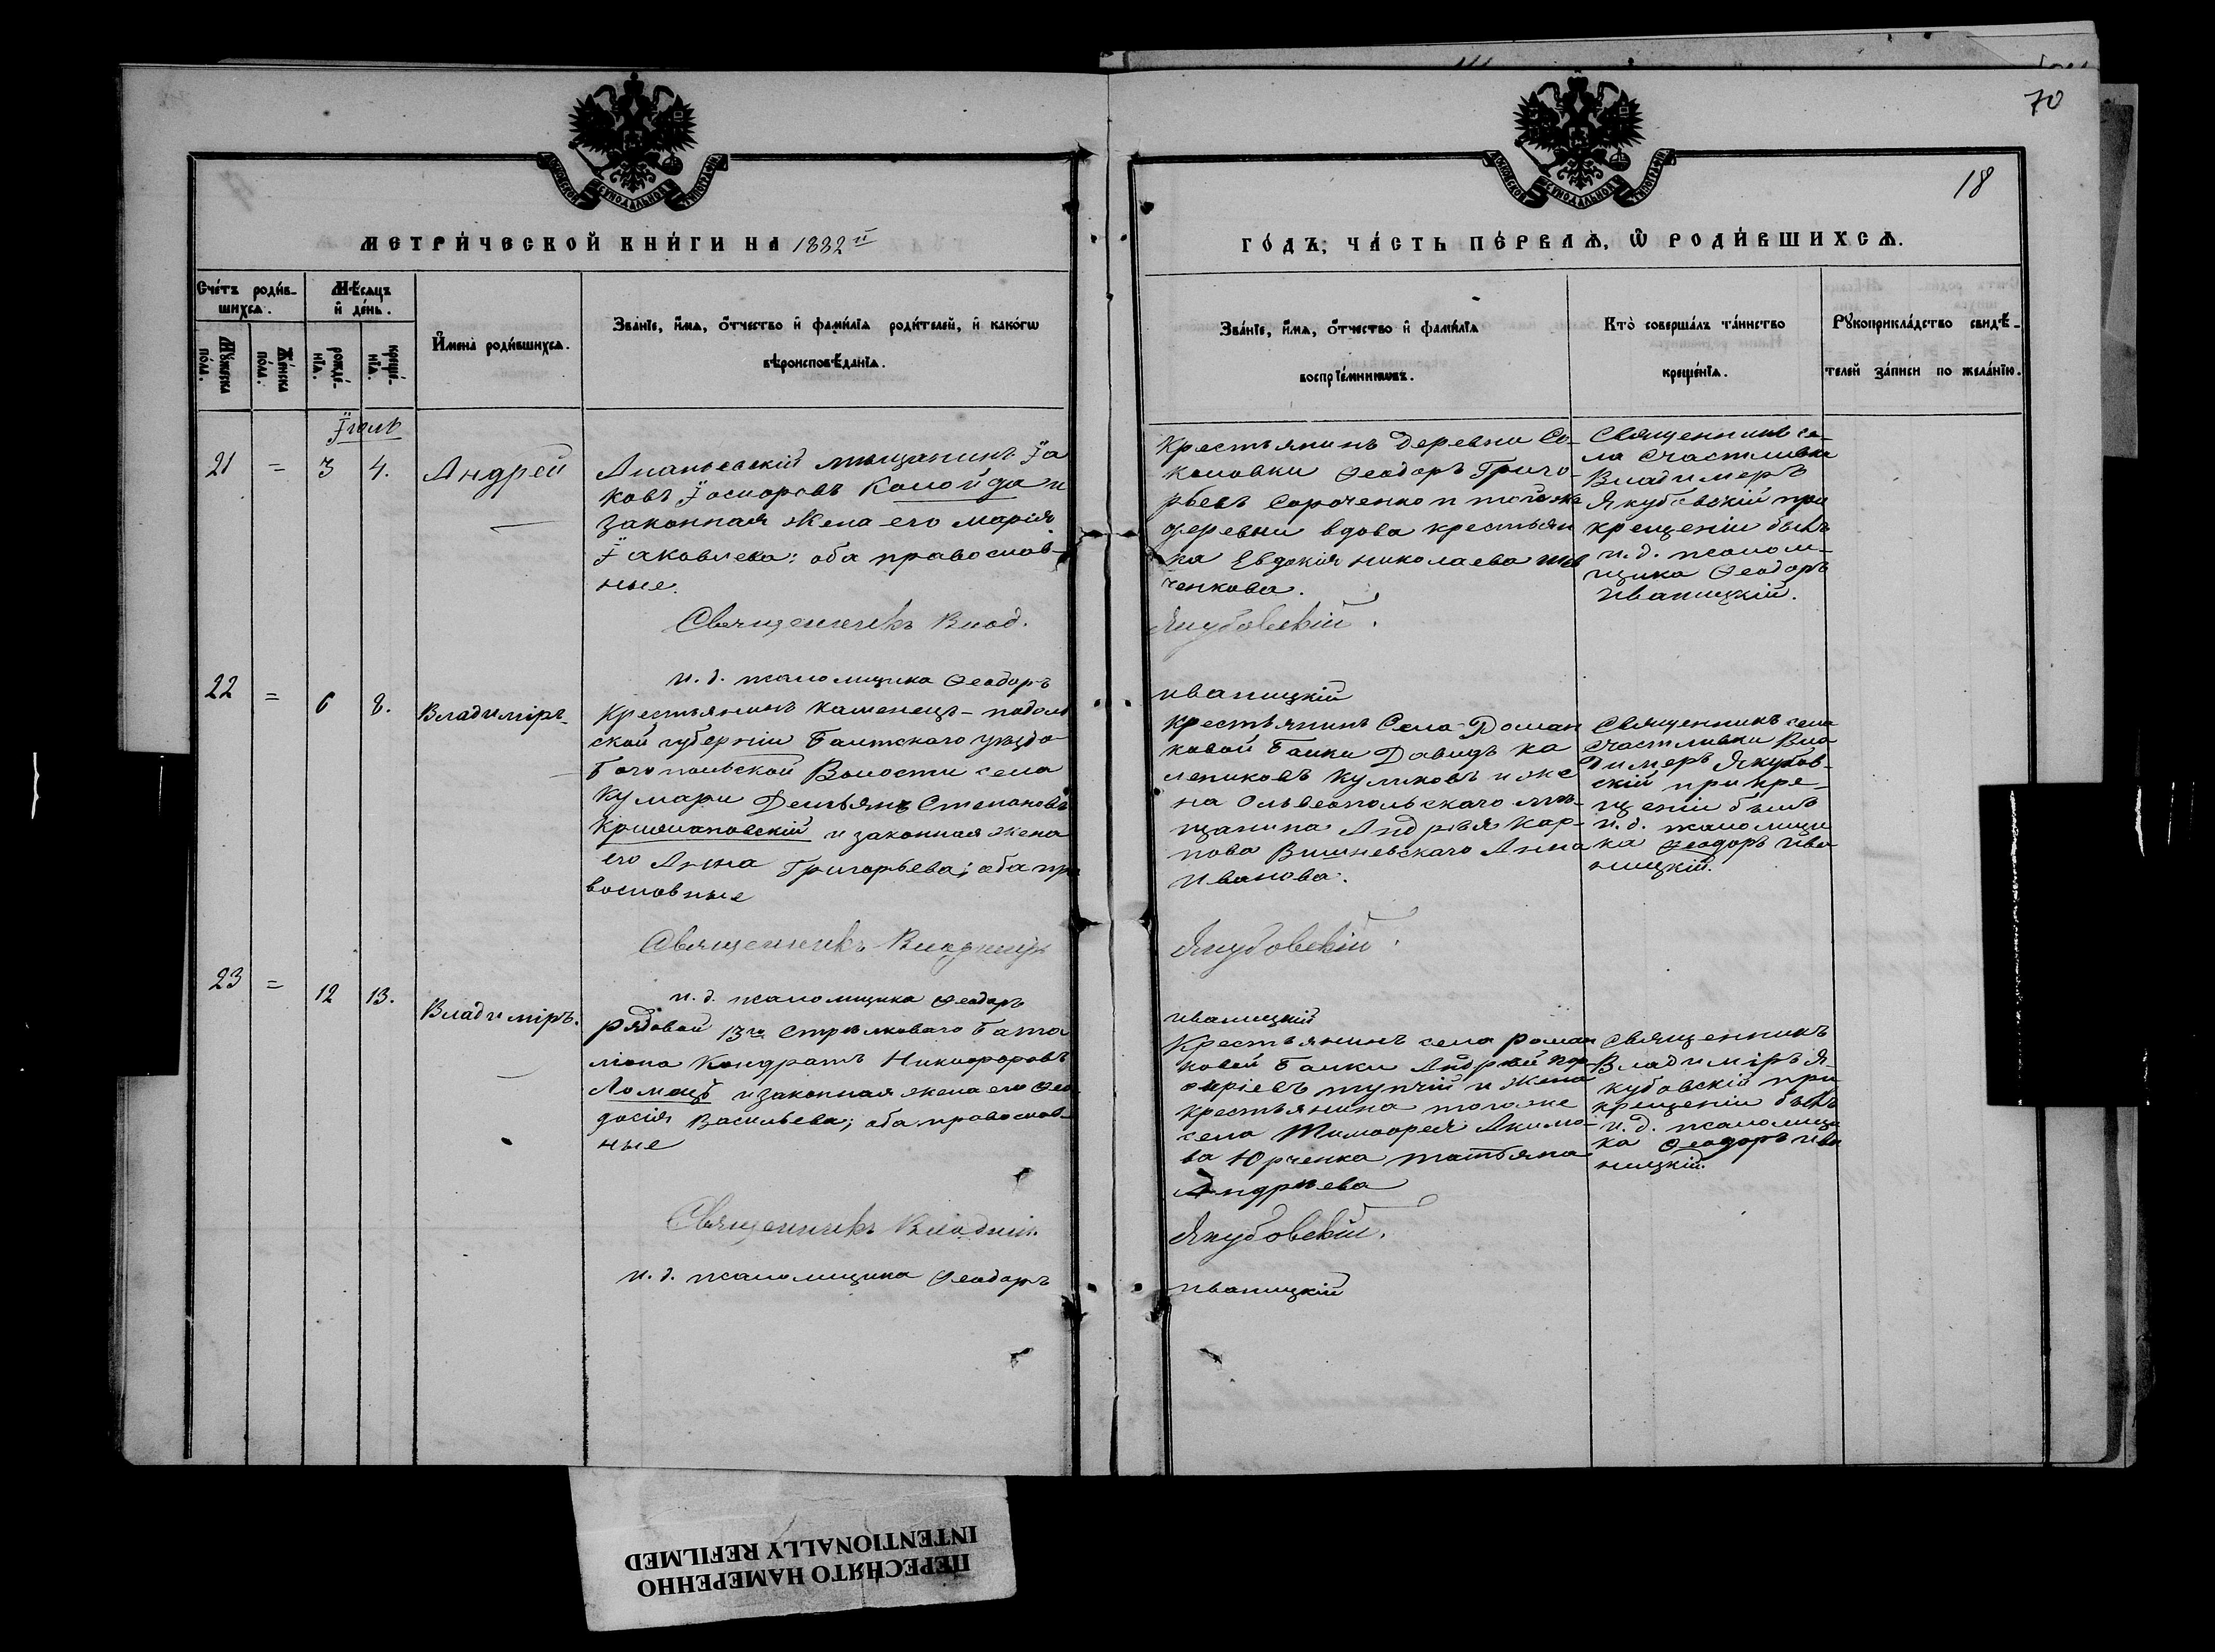 70
18
МОСКОВСКОЙ СѴНОДАЛЬНОЙ ТИПОГРАФІИ
МОСКОВСКОЙ СѴНОДАЛЬНОЙ ТИПОГРАФІИ
МЕТРИ́ЧЕСКОЙ КНИ́ГИ НА 1882 й
ГО́ДЪ, ЧА́СТЬ ПЕ́РВАѦ, Ѿ РОДИ́ВШИХСѦ.
Сче́тъ роди́в-
шихсѧ.
Мꙋ́жеска по́ла.
Же́нска по́ла.
Мѣ́сѧцъ
и҆ де́нь.
рожде́-нїѧ.
креще́-нїѧ.
И҆мена̀ роди́вшихсѧ.
Зва́нїе, и҆́мѧ, ѻ҆́тчество и҆ фами́лїѧ роди́телей, и҆ како́гѡ
вѣроисповѣ́данїѧ.
Зва́нїе, и҆́мѧ, ѻ҆́тчество и҆ фами́лїѧ
воспрїе́мникѡвъ.
Кто̀ соверша́лъ та́инство
креще́нїѧ.
Рꙋкоприкла́дство свидѣ́-
телей за́писи по жела́нїю.
Іюль
21 = 3 4. Андрей
Ананьевскій мѣщанинъ Іа
ковъ Іосифовъ Колойда и
законная жена его Марія
Іаковлева: оба православ-
ные.
Священникъ Влад.
и. д. псаломщика Ѳеодоръ
Крестьянинъ деревни Со-
коловки Ѳеодоръ Григо-
рьевъ Сороченко и тойже
деревни вдова крестьян
ка Евдокія Николаева
ченкова.
Якубовскій.
Иваницкій
Священникъ се-
ла Счастливки
Владимеръ
Якубовскій при
крещеніи былъ
и. д. псалом-
щика Ѳеодоръ
Иваницкій.
22 = 6 8. Владиміръ
Крестьянинъ Каменецъ-Подоль
ской губерніи Балтскаго уѣзда
Богопольской Волости села
Кумари Демьянъ Степановъ
и законная жена
его Анна Григорьева; оба пра
вославные
Священникъ Владимір
и. д. псаломщика Ѳеодоръ
Крестьянинъ Села Доман
ковой Балки Давидъ Ка
лениковъ Куликовъ и же
на Ольвіопольскаго мѣ-
щанина Андрея Кар-
пова Вишневскаго Анна
Иванова.
Якубовскій.
Иваницкій
Священникъ села
Счастливки Вла
димеръ Якубов-
скій при кре-
щеніи былъ
и. д. псаломщи
ка Ѳеодоръ Ива
ницкій.
23 = 12 13. Владиміръ.
рядовой 13го Стрѣлковаго Бата
ліона Кондратъ Никифоровъ
и законная жена его Ѳео
досія Васильева; оба православ-
ные
Священникъ Владимір
и. д. псаломщика Ѳеодоръ
Крестьянинъ села Роман
ковой Балки Андрей Пор
фиріевъ Тупчій и жена
крестьянина тогоже
села Тимофея Акимо-
ва Юрченка Татьяна
Андреева
Якубовскій.
Иваницкій
Священникъ
Владиміръ Я-
кубовскій при
крещеніи былъ
и. д. псаломщи
ка Ѳеодоръ Ива
ницкій.
ПЕРЕСНЯТО НАМЕРЕННО
INTENTIONALLY REFILMED